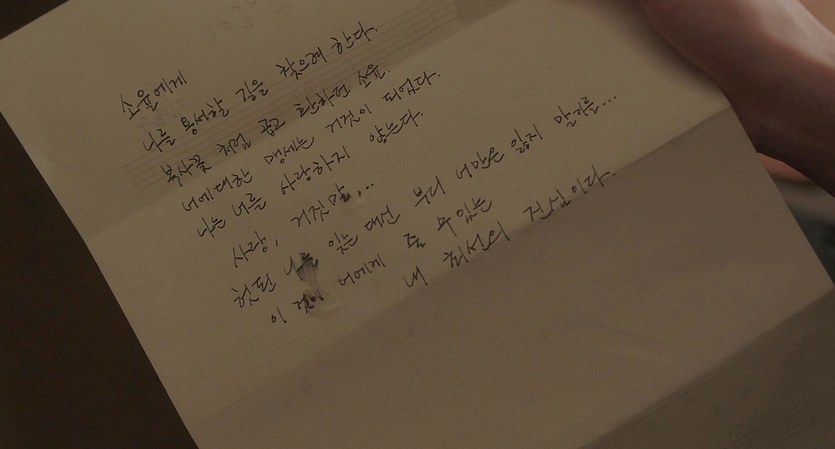 소율에게
나를 용서할 길을 찾으려 한다.
복사꽃 처럼 곱고 환하던 소율.
너에 대한 맹세는 거짓이 되었다.
나는 너를 사랑하지 않는다.
사랑, 거짓말...
헛된 나를 잊는 대신 부디 너만은 잃지 말기를...
이 것이 너에게 줄 수 있는
내 최선의 진심이다.